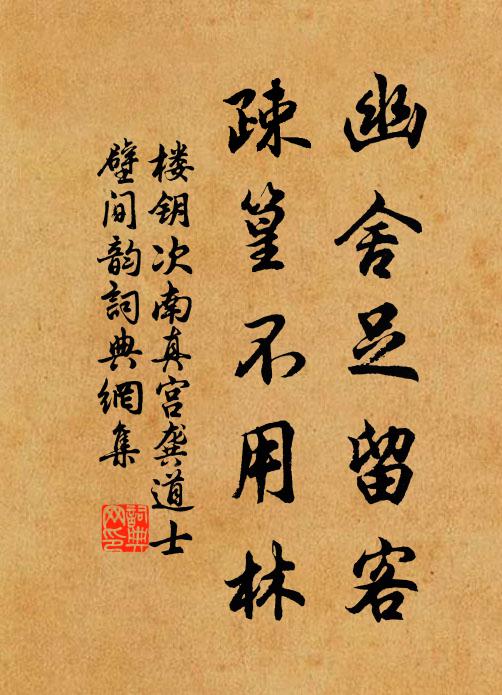 幽舍足留客
疎篁不用林
楼钥次南真宫龚道士
壁间韵詞典網集
詞典网印